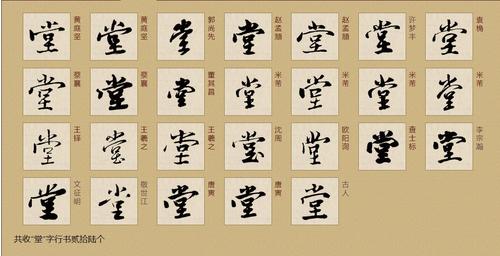 堂 黄庭坚 堂 黄庭坚 堂 郭尚先 堂 赵孟頫 堂 赵孟頫 堂 许梦丰 堂 袁桷
堂 蔡襄 堂 蔡襄 堂 董其昌 堂 米芾 堂 米芾 堂 米芾 堂 米芾
堂 王铎 堂 王羲之 堂 王羲之 堂 沈周 堂 欧阳询 堂 查士标 堂 李宗瀚
堂 文征明 堂 敬世江 堂 唐寅 堂 唐寅 堂 古人
共收“堂”字行书贰拾陆个